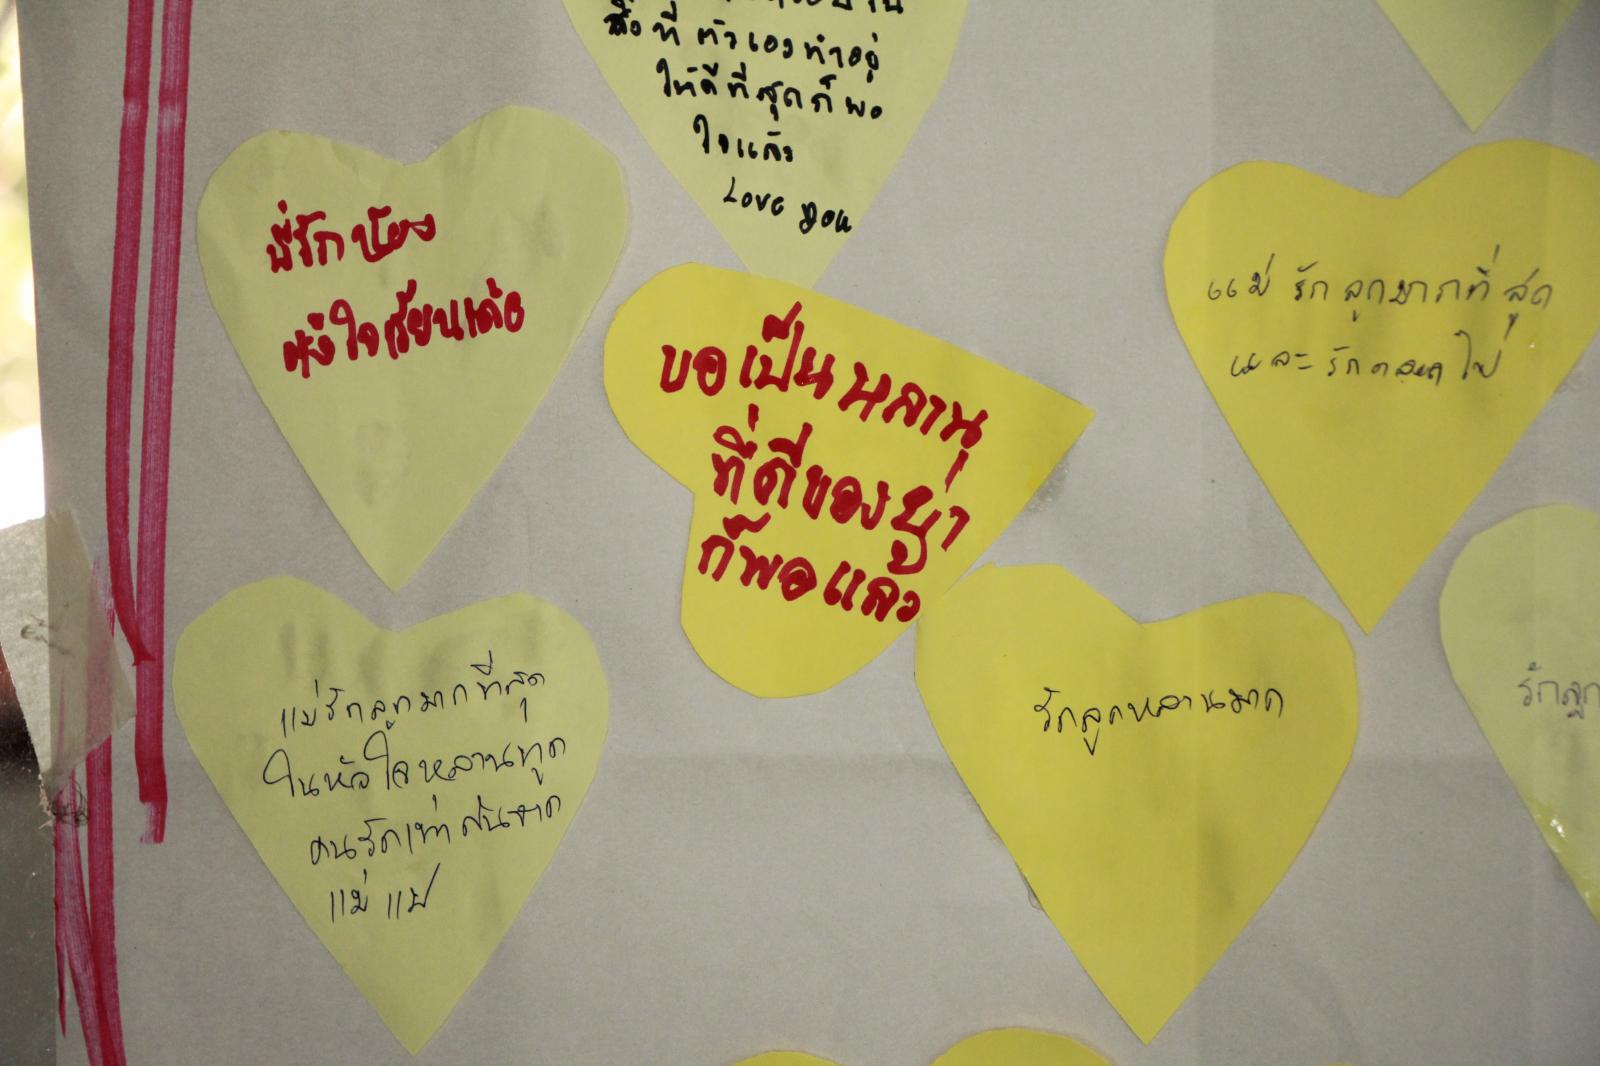 สิ่งที่ตัวเองทำอยู่
ให้ดีที่สุดก็พอ
ใจแล้ว
Love you
พี่รักน้อง
ตั้งใจเรียนเด้อ
ขอเป็นหลาน
ที่ดีของปู่ย่า
ก็พอแล้ว
แม่รักลูกมากที่สุด
และรักตลอดไป
แม่รักลูกมากที่สุด
ในหัวใจหลานทูด
คนรักเท่า
แม่
รักลูกหลานมาก
รักลูก